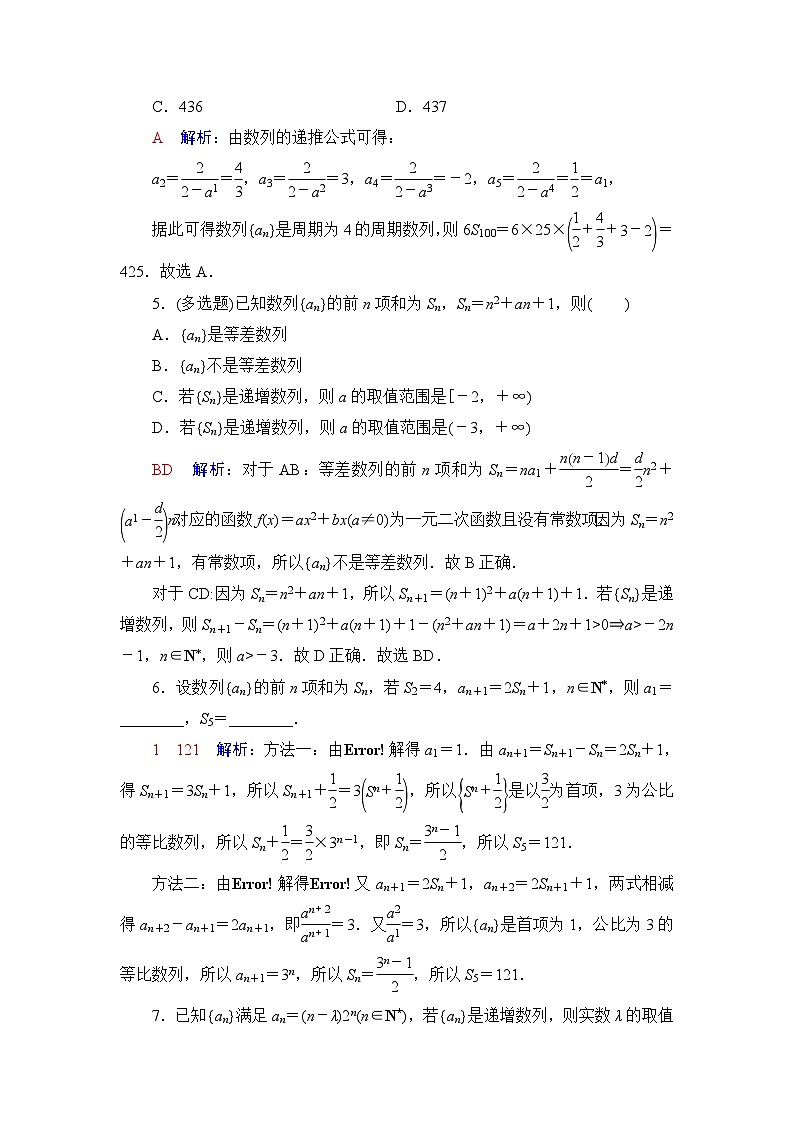 C．436 D．437
A 解析：由数列的递推公式可得：
a2＝2/(2－a1)＝4/3，a3＝2/(2－a2)＝3，a4＝2/(2－a3)＝－2，a5＝2/(2－a4)＝1/2＝a1，
据此可得数列{an}是周期为 4 的周期数列，则 6S100＝6×25×(1/2＋4/3＋3－2)＝
425．故选 A．
5．(多选题)已知数列{an}的前 n 项和为 Sn，Sn＝n2＋an＋1，则( )
A．{an}是等差数列
B．{an}不是等差数列
C．若{Sn}是递增数列，则 a 的取值范围是[－2，＋∞)
D．若{Sn}是递增数列，则 a 的取值范围是(－3，＋∞)
BD 解析：对于 AB：等差数列的前 n 项和为 Sn＝na1＋n(n－1)d/2＝d/2n2＋
(a1－d/2)n对应的函数 f(x)＝ax2＋bx(a≠0)为一元二次函数且没有常数项．因为 Sn＝n2
＋an＋1，有常数项，所以{an}不是等差数列．故 B 正确．
对于 CD：因为 Sn＝n2＋an＋1，所以 Sn＋1＝(n＋1)2＋a(n＋1)＋1．若{Sn}是递
增数列，则 Sn＋1－Sn＝(n＋1)2＋a(n＋1)＋1－(n2＋an＋1)＝a＋2n＋1>0⇒a>－2n
－1，n∈N*，则 a>－3．故 D 正确．故选 BD．
6．设数列{an}的前 n 项和为 Sn，若 S2＝4，an＋1＝2Sn＋1，n∈N*，则 a1＝
________，S5＝________．
1 121 解析：方法一：由Error! 解得 a1＝1．由 an＋1＝Sn＋1－Sn＝2Sn＋1，
得 Sn＋1＝3Sn＋1，所以 Sn＋1＋1/2＝3(Sn＋1/2)，所以{Sn＋1/2}是以3/2为首项，3 为公比
的等比数列，所以 Sn＋1/2＝3/2×3n－1，即 Sn＝(3n－1)/2，所以 S5＝121．
方法二：由Error! 解得Error! 又 an＋1＝2Sn＋1，an＋2＝2Sn＋1＋1，两式相减
得 an＋2－an＋1＝2an＋1，即an＋2/an＋1＝3．又a2/a1＝3，所以{an}是首项为 1，公比为 3 的
等比数列，所以 an＋1＝3n，所以 Sn＝(3n－1)/2，所以 S5＝121．
7．已知{an}满足 an＝(n－λ)2n(n∈N*)，若{an}是递增数列，则实数 λ 的取值